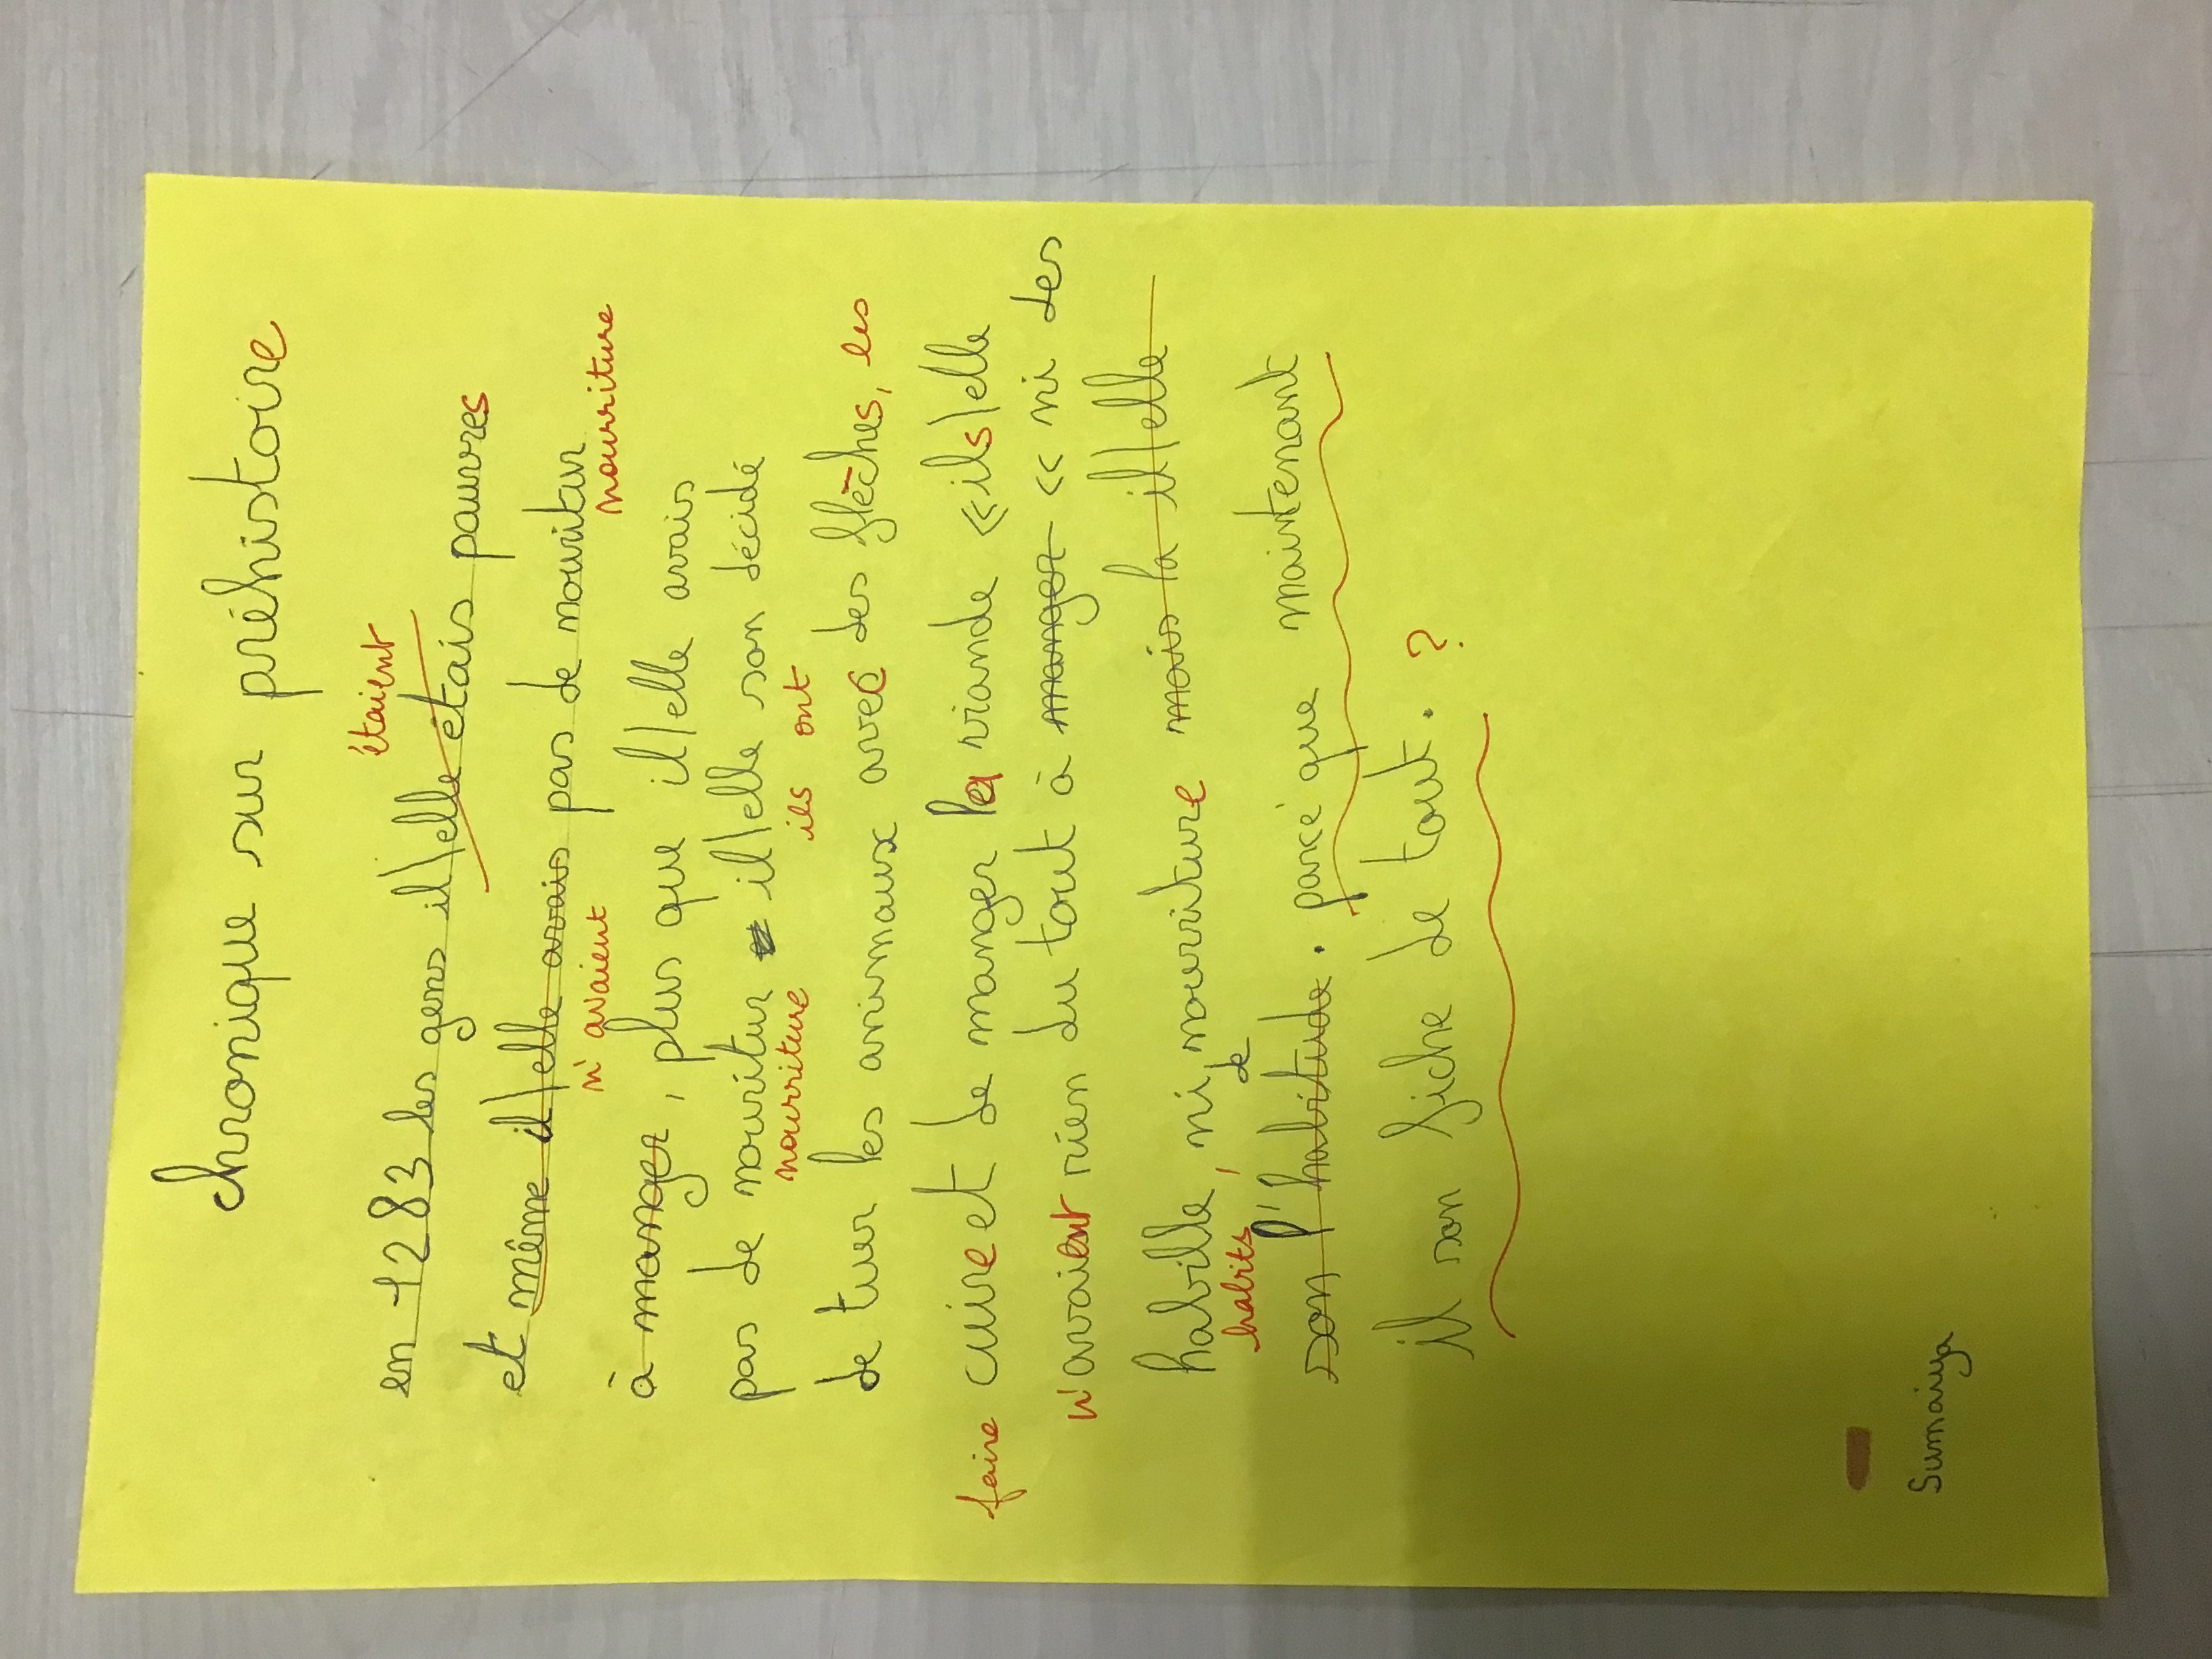 chronique sur préhistoire
étaient
en -1283 les gens il/elle etais pauvres
et même il/elle avais pas de nouritur
n'avaient nourriture
à manger, plus que il/elle avais
pas de nouritur il/elle son décidé
nourriture ils ont
de tuer les animaux avec des flèches, les
faire cuire et de manger la viande « ils/elle
n'avaient rien du tout à manger « ni des
habille, ni nourriture mais la il/elle
habits, de
son l'habitude. parce que maintenant
il son fiche de tout. ?
Sumaiya